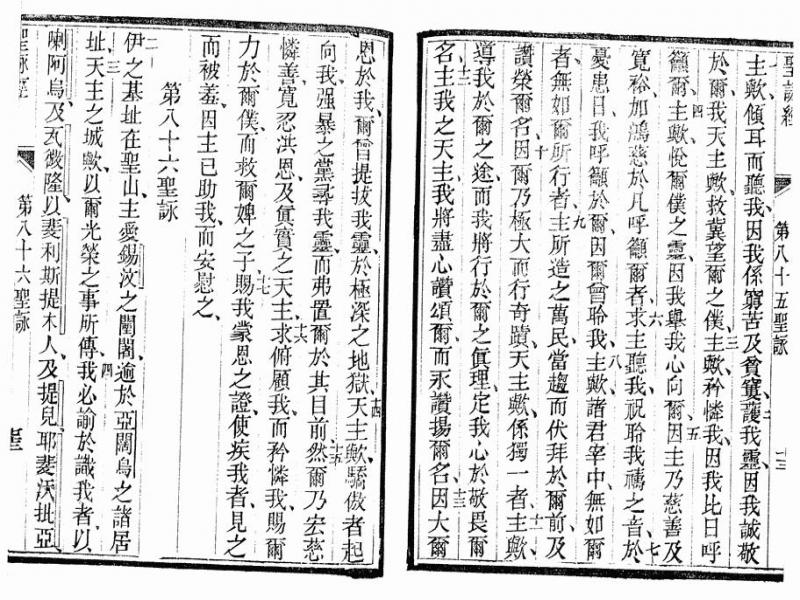 聖詠經
第八十五聖詠
主歟傾耳而聽我因我係窮苦及貧窶二護我靈因我誠敬
於爾我天主歟救冀望爾之僕三主歟矜憐我因我比日呼
籲爾四主歟悅爾僕之靈因我舉我心向爾五因主乃慈善及
寬裕加鴻慈於凡呼籲爾者六求主聽我祝聆我禱之音七於
憂患日我呼籲於爾因爾曾聆我八主歟諸君宰中無如爾
者無如爾所行者九主所造之萬民當趨而伏拜於爾前及
讚榮爾名十因爾乃極大而行奇蹟天主歟係獨一者十一主歟
導我於爾之途而我將行於爾之眞理定我心於敬畏爾
名十二主我之天主我將盡心讚頌爾而永讚揚爾名十三因大爾
恩於我爾曾提拔我靈於極深之地獄十四天主歟驕傲者起
向我强暴之黨尋我靈而弗置爾於其目前十五然爾乃宏慈
憐善寬忍洪恩及眞實之天主十六求俯顧我而矜憐我賜爾
力於爾僕而救爾婢之子十七賜我蒙恩之證使疾我者見之
而被羞因主已助我而安慰之
第八十六聖詠
二伊之基址在聖山主愛錫汶之闈閣逾於亞闊烏之諸居
址三天主之城歟以爾光榮之事所傳四我必諭於識我者以
喇阿烏及瓦微隆以斐利斯提木人及提兒耶斐沃批亞
聖詠經
第八十六聖詠